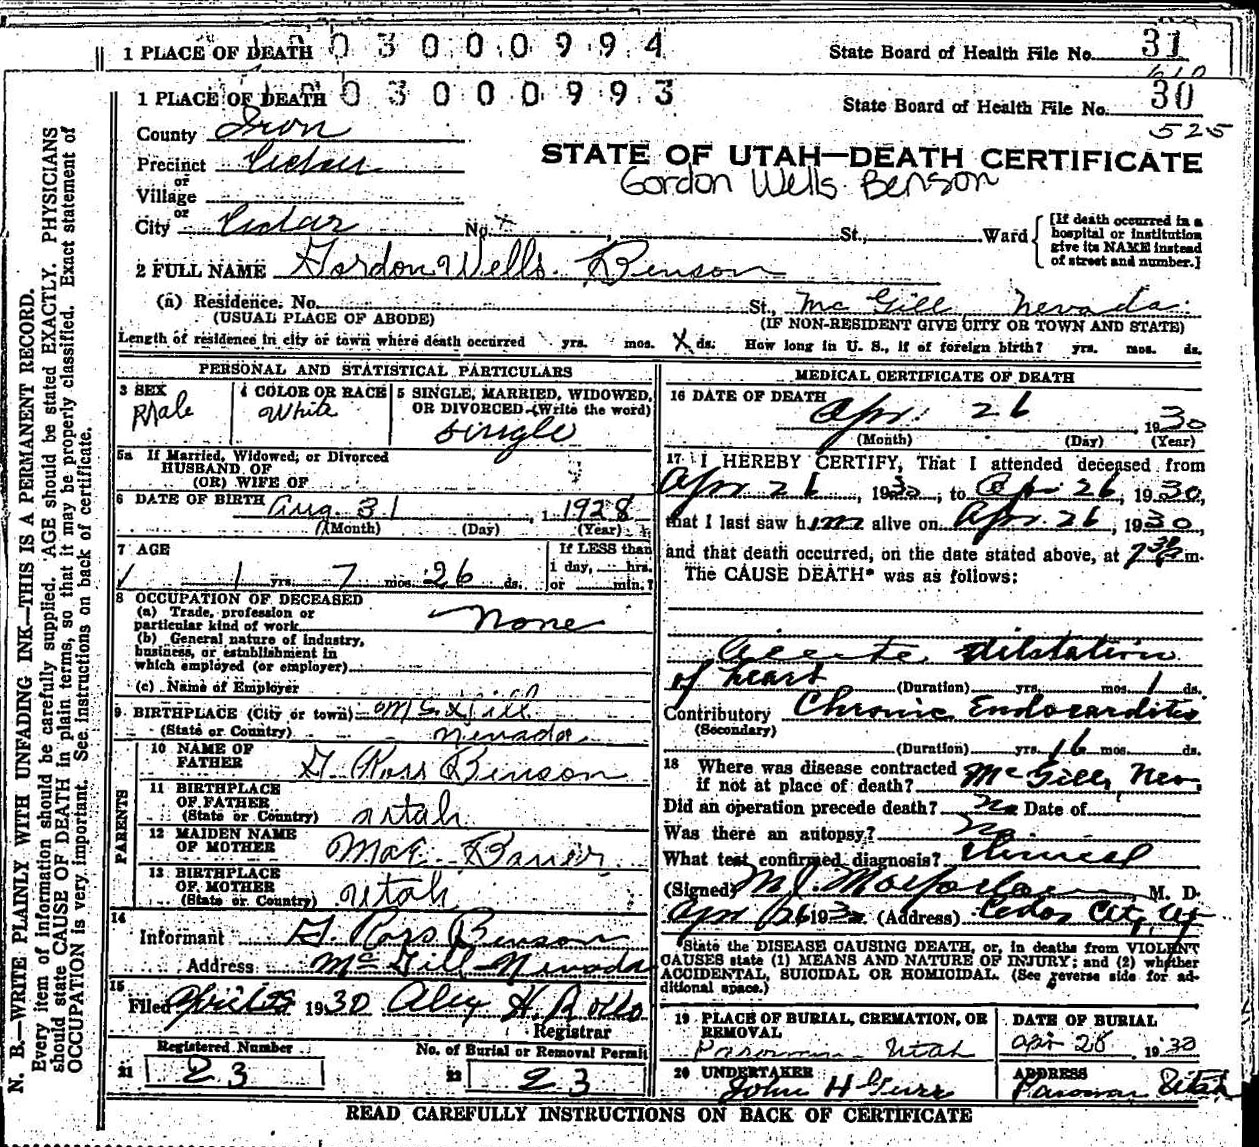 1 PLACE OF DEATH 1 0 3 0 0 0 9 9 4 State Board of Health File No. 31
1 PLACE OF DEATH 1 0 3 0 0 0 9 9 3 State Board of Health File No. 30
525
County Iron
Precinct Cedar
or
Village
or
City Cedar No. x St., Ward
STATE OF UTAH—DEATH CERTIFICATE
Gordon Wells Benson
[If death occurred in a
hospital or institution
give its NAME instead
of street and number.]
2 FULL NAME Gordon Wells Benson
(a) Residence. No. St., Mc Gill Nevada
(USUAL PLACE OF ABODE) (IF NON-RESIDENT GIVE CITY OR TOWN AND STATE)
Length of residence in city or town where death occurred yrs. mos. X ds. How long in U. S., if of foreign birth? yrs. mos. ds.
PERSONAL AND STATISTICAL PARTICULARS
3 SEX Male
4 COLOR OR RACE White
5 SINGLE, MARRIED, WIDOWED,
OR DIVORCED (Write the word)
single
5a If Married, Widowed, or Divorced
HUSBAND OF
(OR) WIFE OF
6 DATE OF BIRTH Aug 31, 1928
(Month) (Day) (Year)
7 AGE
1 yrs. 7 mos. 26 ds.
If LESS than
1 day, hrs.
or min.?
8 OCCUPATION OF DECEASED
(a) Trade, profession or
particular kind of work None
(b) General nature of industry,
business, or establishment in
which employed (or employer)
(c) Name of Employer
9 BIRTHPLACE (City or town) McGill
(State or Country) Nevada
PARENTS
10 NAME OF
FATHER G. Ross Benson
11 BIRTHPLACE
OF FATHER
(State or Country) Utah
12 MAIDEN NAME
OF MOTHER Mae
13 BIRTHPLACE
OF MOTHER
(State or Country) Utah
14
Informant G. Ross Benson
Address Mc Gill Nevada
15
Filed 1930 Alex H. Rollo
Registrar
Registered Number No. of Burial or Removal Permit
21 23 22 23
MEDICAL CERTIFICATE OF DEATH
16 DATE OF DEATH
Apr. 26, 1930
(Month) (Day) (Year)
17 I HEREBY CERTIFY, That I attended deceased from
Apr 26, 1930, to Apr. 26, 1930,
that I last saw him alive on Apr. 26, 1930,
and that death occurred, on the date stated above, at 7 m.
The CAUSE DEATH* was as follows:
Acute dilatation
of heart (Duration) yrs. mos. 1 ds.
Contributory Chronic Endocarditis
(Secondary)
(Duration) yrs. 16 mos. ds.
18 Where was disease contracted
if not at place of death? McGill, Nev.
Did an operation precede death? No Date of
Was there an autopsy? No
What test confirmed diagnosis? Clinical
(Signed) M. J. Macfarlane, M. D.
Apr 26 1930 (Address) Cedar City, Ut
State the DISEASE CAUSING DEATH, or, in deaths from VIOLENT
CAUSES state (1) MEANS AND NATURE OF INJURY; and (2) whether
ACCIDENTAL, SUICIDAL OR HOMICIDAL. (See reverse side for ad-
ditional space.)
19 PLACE OF BURIAL, CREMATION, OR
REMOVAL
Parowan Utah
DATE OF BURIAL
Apr 28, 1930
20 UNDERTAKER
John H Gurr
ADDRESS
Parowan Utah
READ CAREFULLY INSTRUCTIONS ON BACK OF CERTIFICATE
N. B.—WRITE PLAINLY WITH UNFADING INK—THIS IS A PERMANENT RECORD.
Every item of information should be carefully supplied. AGE should be stated EXACTLY. PHYSICIANS
should state CAUSE OF DEATH in plain terms, so that it may be properly classified. Exact statement of
OCCUPATION is very important. See instructions on back of certificate.